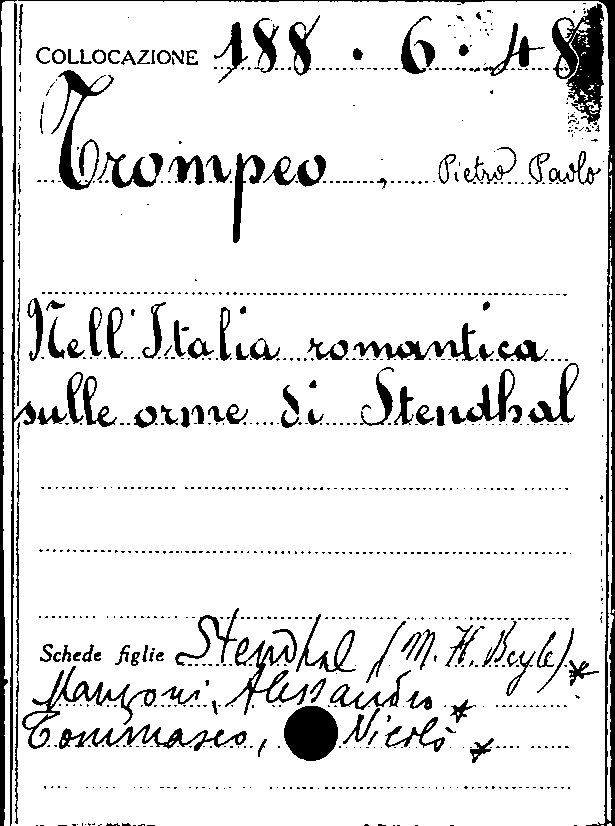 COLLOCAZIONE 188.6.48
Trompeo, Pietro Paolo
Nell'Italia romantica
sulle orme di Stendhal
Schede figlie Stendhal (M. H. Beyle)*
Manzoni, Alessandro *
Tommaseo, Nicolò *